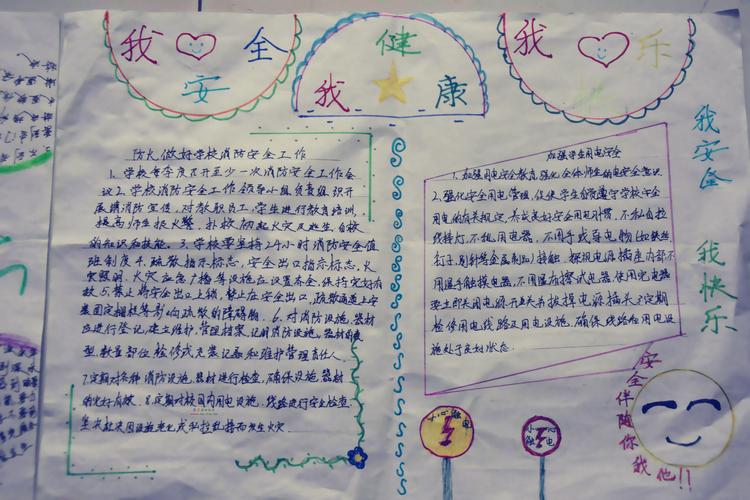 我 全
安
健
我 康
我 乐
防火做好学校消防安全工作
1、学校每季度召开至少一次消防安全工作会
议2、学校消防安全工作领导小组负责组织开
展消防宣传,对教职员工、学生进行教育培训,
提高师生报火警、扑救初起火灾及逃生、自救
的知识和技能。3、学校要坚持24小时消防安全值
班制度4、疏散指示标志,安全出口指示标志,火
灾照明、火灾应急广播等设施应设置齐全,保持完好有
效5、禁止将安全出口上锁、禁止在安全出口、疏散通道上安
装固定栅栏等影响疏散的障碍物。6、对消防设施、器材
应进行登记,建立维护、管理档案、记明消防设施、器材的类
型、数量部位检修或充装记录和维护管理责任人.
7、定期对各种消防设施、器材进行检查,确保设施、器材
的完好有效、8、定期对校园内用电设施、线路进行安全检查.
坚决杜绝因设施老化或私拉乱接而发生火灾.
加强学生用电安全
1、加强用电安全教育,强化全体师生的电安全意识
2、强化安全用电管理,促使学生自觉遵守学校安全
用电的有关规定,养成良好安全用电习惯,不私自拉
线接灯、不乱用电器,不用手或导电物(如铁丝、
钉子、别针等金属制品)接触、探视电源插座内部不
用湿手触摸电器,不用湿布擦拭电器、使用完电器
要立即关闭电源开关并拔掉电源插头3定期
检修用电线路及用电设施、确保线路和用电设
施处于良好状态.
我安全
我快乐
安全伴随你我他!!
小心触电
小心触电